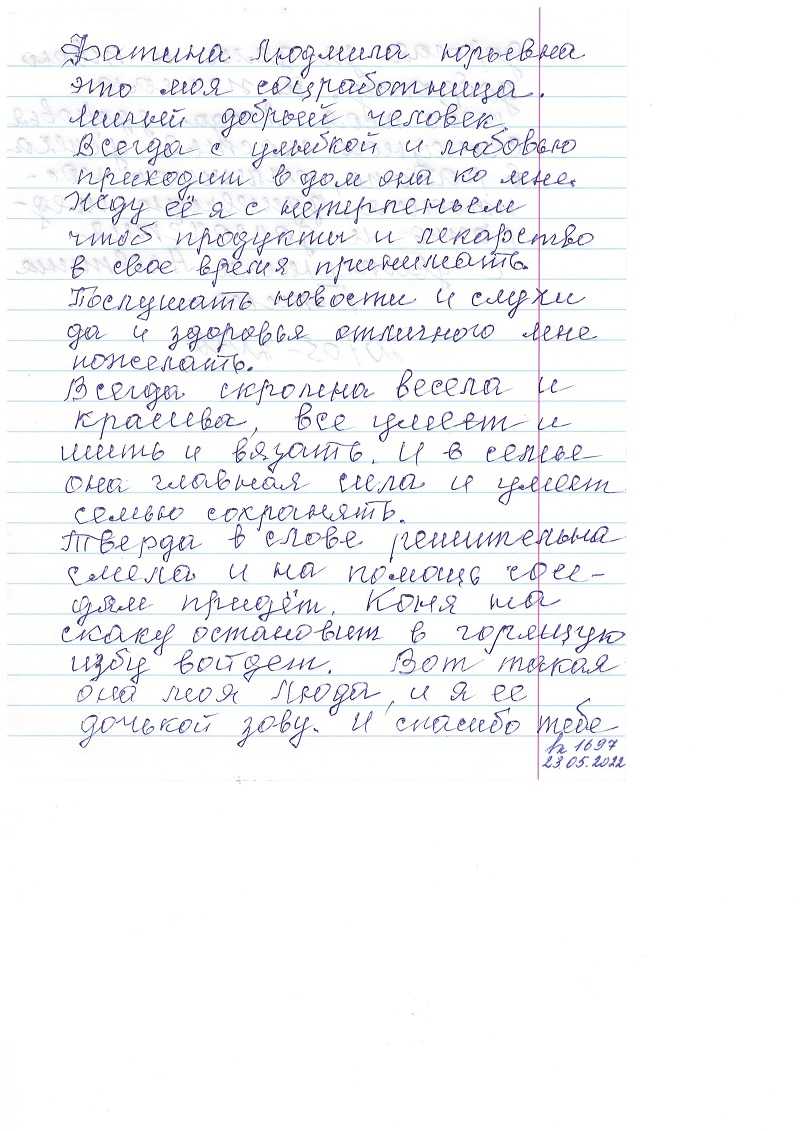 Фатина Людмила юрьевна
это моя соцработница.
Милый добрый человек
Всегда с улыбкой и любовью
приходит в дом она ко мне.
Жду её я с нетерпеньем
чтоб продукты и лекарство
в свое время принимать.
Послушать новости и слухи
да и здоровья отличного мне
пожелать.
Всегда скромна весела и
красива, все умеет и
шить и вязать. И в семье
она главная сила и умеет
семью сохранять.
Тверда в слове решительна
смела и на помощь сосе-
дям придёт. Коня на
скаку остановит в горящую
избу войдет. Вот такая
она моя Люда, и я ее
дочькой зову. И спасибо тебе
вх 1697
23.05.2022